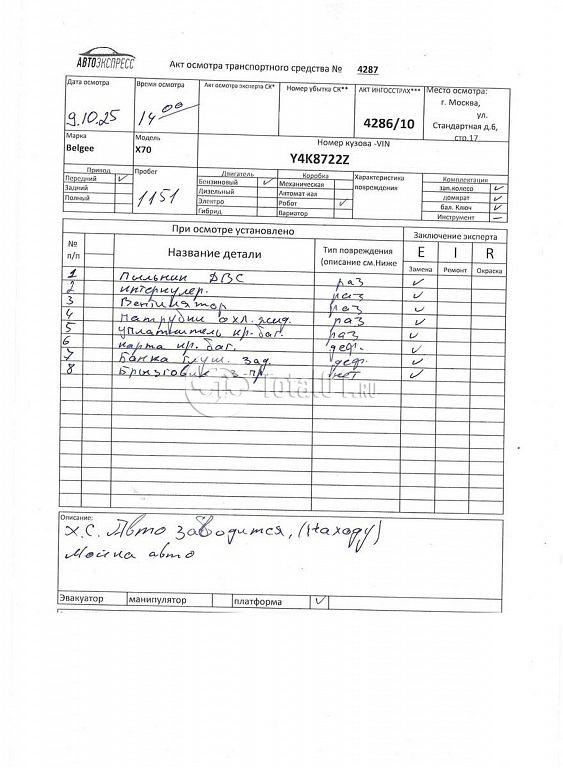 АВТОЭКСПРЕСС
Акт осмотра транспортного средства № 4287
Дата осмотра
Время осмотра
Акт осмотра эксперта СК*
Номер убытка СК**
АКТ ИНГОССТРАХ***
Место осмотра:
г. Москва,
ул.
Стандартная д.6,
стр.17
9.10.25
14 00
4286/10
Марка
Модель
Номер кузова -VIN
Belgee
X70
Y4K8722Z
Привод
Пробег
Двигатель
Коробка
Характеристика
повреждения
Комплектация
Передний ✓
Бензиновый ✓
Механическая
зап.колесо ✓
Задний
1151
Дизельный
Автомат-кая
домкрат ✓
Полный
Электро
Робот ✓
бал. Ключ ✓
Гибрид
Вариатор
Инструмент –
При осмотре установлено
Заключение эксперта
№
п/п
Название детали
Тип повреждения
(описание см.Ниже
E I R
Замена Ремонт Окраска
1 Пыльник ДВС раз ✓
2 интеркулер. раз ✓
3 Вентилятор раз ✓
4 Патрубки охл. жид. раз ✓
5 уплатнитель кр. баг. раз ✓
6 карта кр. баг. деф. ✓
7 Банка глуш. зад. деф. ✓
8 Брызговик з-пр. нет ✓
TotalUT.RU
Описание:
Х.С. Авто заводится, (На ходу)
Мойка авто
Эвакуатор манипулятор платформа ✓